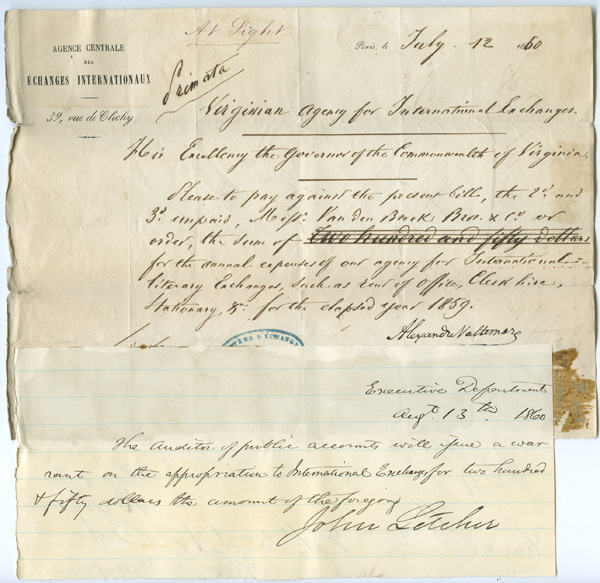 AGENCE CENTRALE
DES
ÉCHANGES INTERNATIONAUX
39, rue de Clichy
At Sight.
Primata
Paris, le July. 12 1860
Virginian Agency for International Exchanges.
His Excellency the Governor of the Commonwealth of Virginia
Please to pay against the present bill, the 2d and
3d unpaid, Messrs. Van den Broek Bros. & Co or
order, the sum of two hundred and fifty dollars
for the annual expenses of our agency for International
literary Exchanges, such as rent of office, Clerk hire,
Stationary, &c. for the elapsed year 1859.
Alexandre Vattemare
D'ÉCHANGE
Executive Department
Augt 13th 1860
The auditor of public accounts will issue a war
rant on the appropriation to International Exchanges for two hundred
& fifty dollars the amount of the foregoing
John Letcher